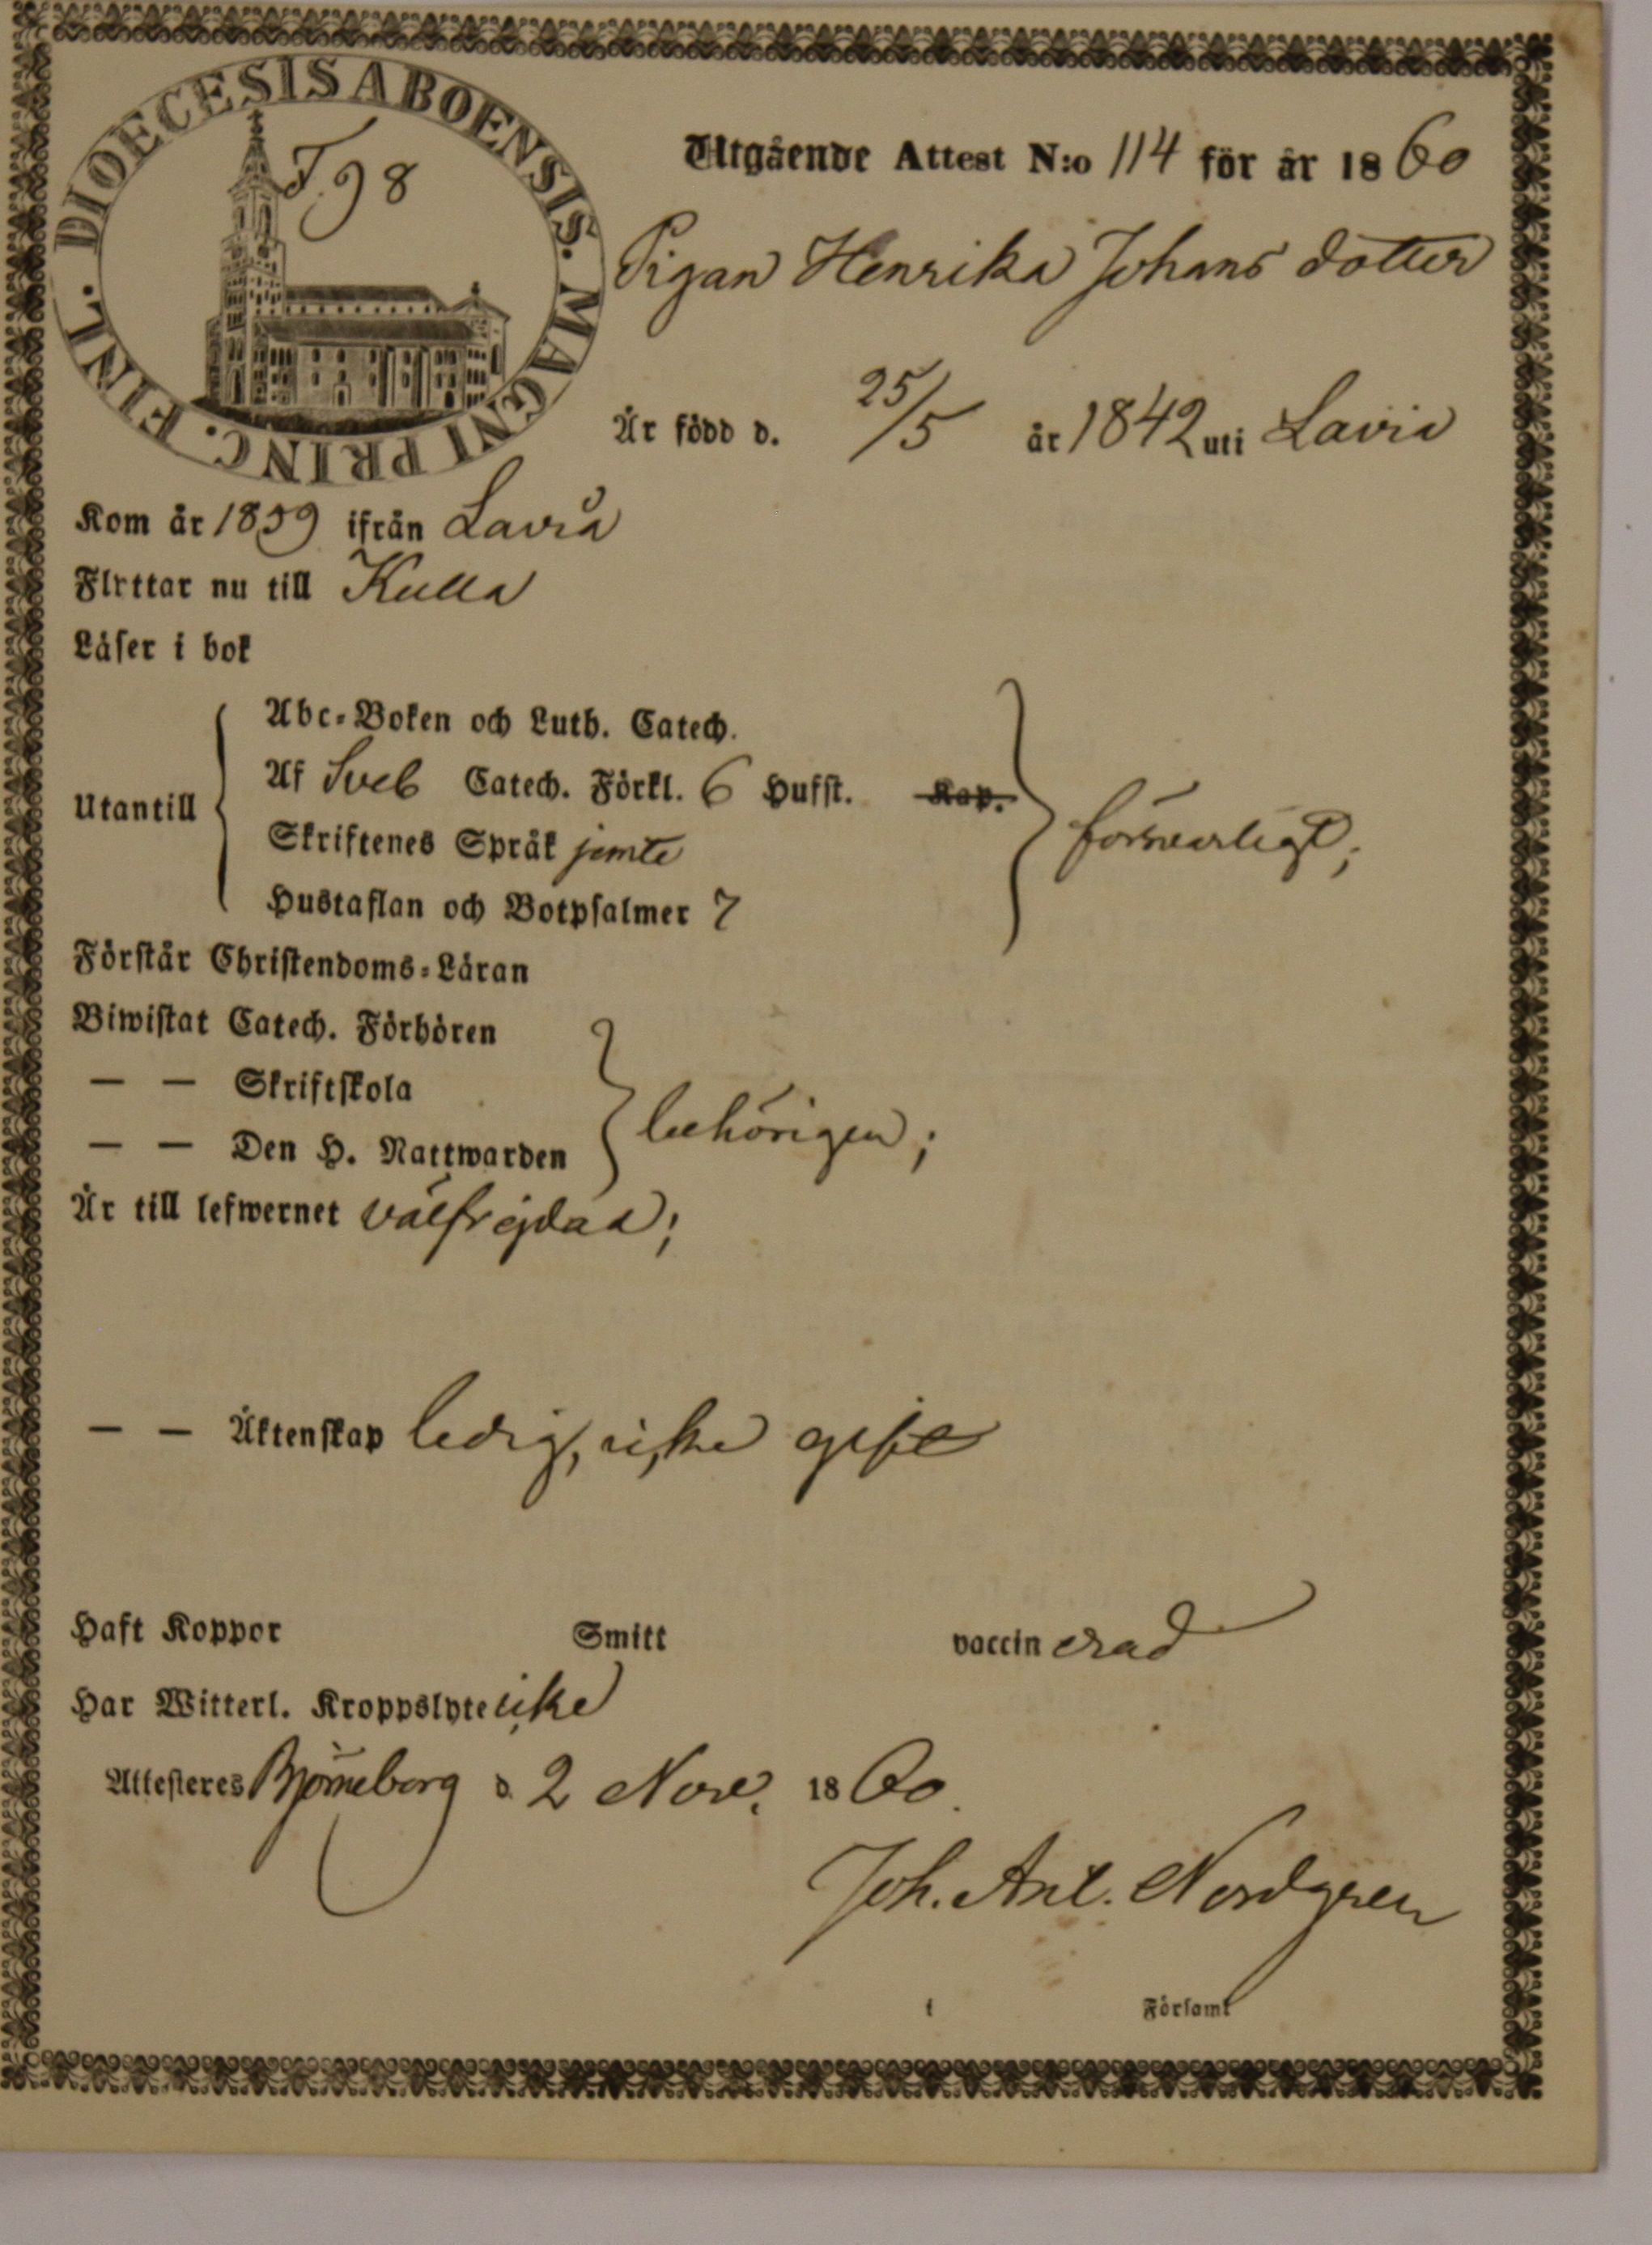 DIOECESIS ABOENSIS. MAGNI PRINC. FINL.
T. 98
Utgående Attest N:o 114 för år 1860
Pigan Henrika Johans dotter
Är född d. 25/5 år 1842 uti Lavia
Kom år 1859 ifrån Lavia
Flyttar nu till Kulla
Läser i bok
Abc-Boken och Luth. Catech.
Af Sveb Catech. Förkl. 6 Hufst. Kap.
Utantill
försvarligt;
Skriftenes Språk jemte
Hustaflan och Botpsalmer 7
Förstår Christendoms-Läran
Biwistat Catech. Förhören
— — Skriftskola
behörigen;
— — Den H. Nattwarden
Är till lefwernet välfrejdad;
— — Äktenskap ledig, icke gift
Haft Koppor Smitt vaccinerad
Har Witterl. Kroppslyte icke
Attesteres Björneborg d. 2 Nov. 1860.
Joh. Ant. Nordgren
i Församl